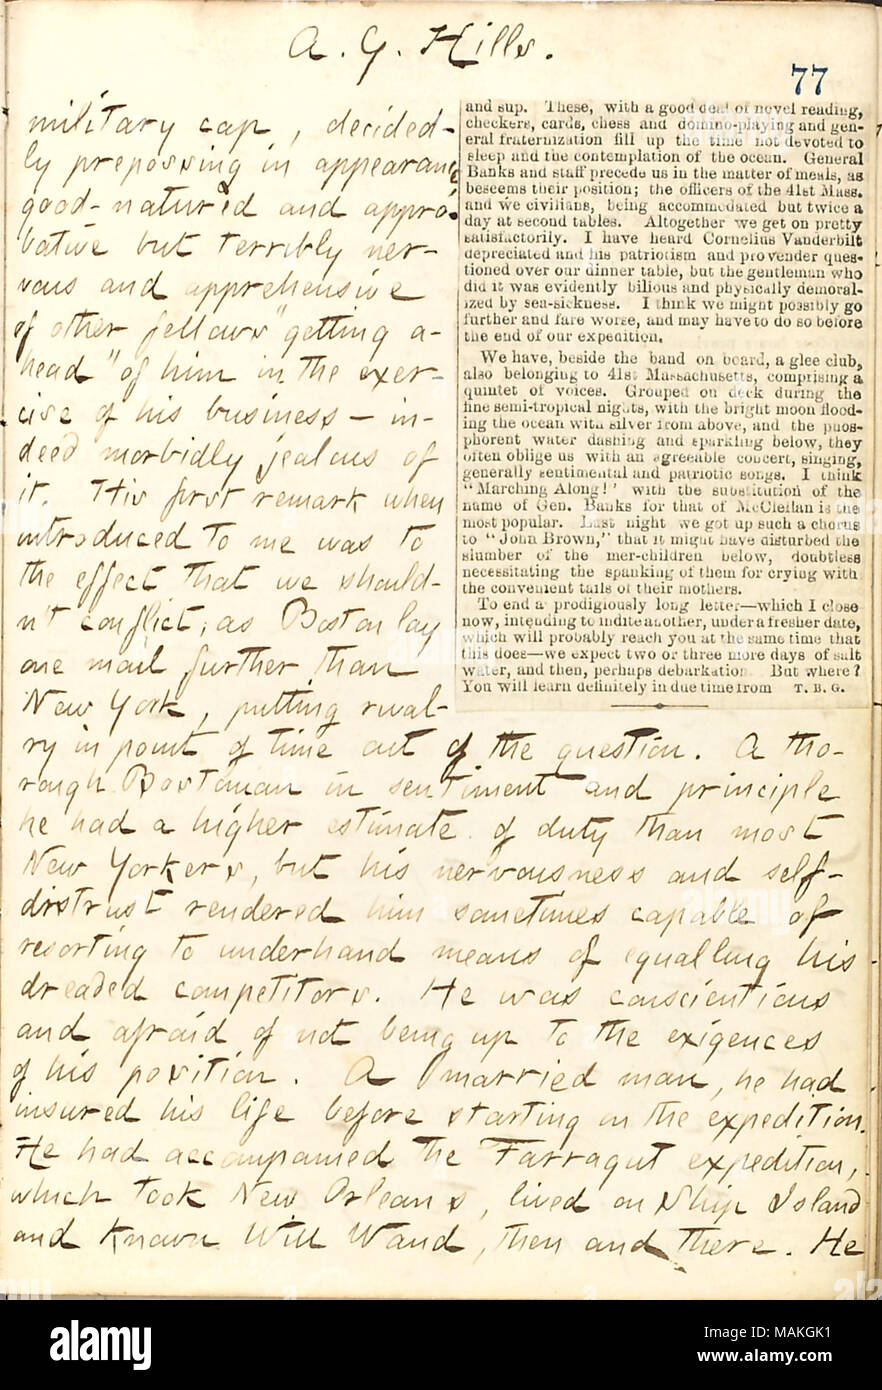 A. G. Hills.
77
military cap, decided-
ly preposs̄ing in appearance
good-natured and appro-
bative but terribly ner-
vous and apprehensive
of other fellows "getting a-
head" of him in the exer-
cise of his business — in-
deed morbidly jealous of
it. His first remark when
introduced to me was to
the effect that we should-
n't conflict, as Boston lay
one mail further than
New York, putting rival-
ry in point of time out of the question. A tho-
rough Bostonian in sentiment and principle
he had a higher estimate of duty than most
New Yorkers, but his nervousness and self-
distrust rendered him sometimes capable of
resorting to underhand means of equalling his
dreaded competitors. He was conscientious
and afraid of not being up to the exigences
of his position. A married man, he had
insured his life before starting on the expedition.
He had accompanied the Farragut expedition,
which took New Orleans, lived on Ship Island
and known Will Waud, then and there. He
and sup. These, with a good deal of novel reading,
checkers, cards, chess and domino-playing and gen-
eral fraternization fill up the time not devoted to
sleep and the contemplation of the ocean. General
Banks and staff precede us in the matter of meals, as
beseems their position; the officers of the 41st Mass.
and we civilians, being accommodated but twice a
day at second tables. Altogether we get on pretty
satisfactorily. I have heard Cornelius Vanderbilt
depreciated and his patriotism and provender ques-
tioned over our dinner table, but the gentleman who
did it was evidently bilious and physically demoral-
ized by sea-sickness. I think we might possibly go
further and fare worse, and may have to do so before
the end of our expedition.
We have, beside the band on board, a glee club,
also belonging to 41st Massachusetts, comprising a
quintet of voices. Grouped on deck during the
fine semi-tropical nights, with the bright moon flood-
ing the ocean with silver from above, and the phos-
phorent water dashing and sparkling below, they
often oblige us with an agreeable concert, singing,
generally sentimental and patriotic songs. I think
"Marching Along!" with the substitution of the
name of Gen. Banks for that of McClellan is the
most popular. Last night we got up such a chorus
to "John Brown," that it might have disturbed the
slumber of the mer-children below, doubtless
necessitating the spanking of them for crying with
the convenient tails of their mothers.
To end a prodigiously long letter—which I close
now, intending to indite another, under a fresher date,
which will probably reach you at the same time that
this does—we expect two or three more days of salt
water, and then, perhaps debarkation. But where?
You will learn definitely in due time from T. B. G.
alamy
Image ID: MAKGK1
www.alamy.com